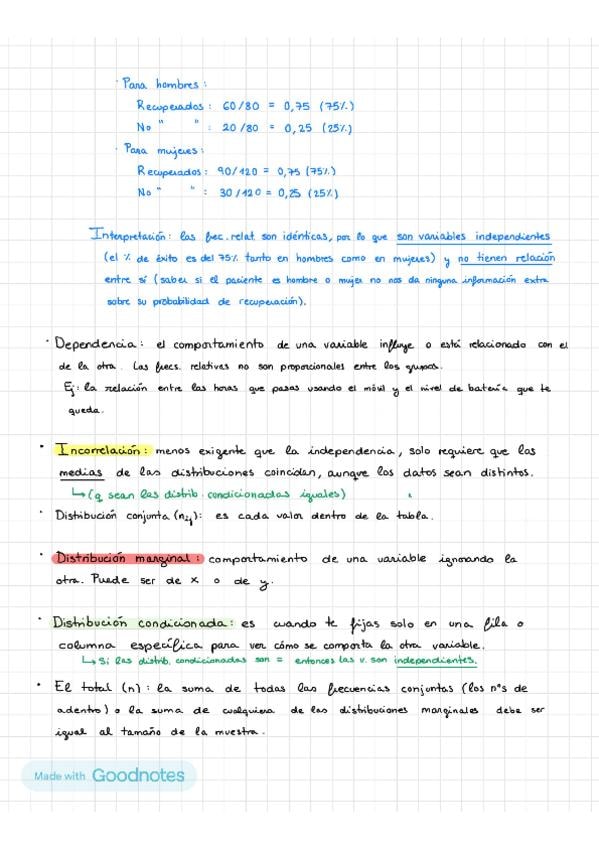 · Para hombres:
Recuperados: 60/80 = 0,75 (75%)
No " " : 20/80 = 0,25 (25%)
· Para mujeres:
Recuperados: 90/120 = 0,75 (75%)
No " " : 30/120 = 0,25 (25%)
Interpretación: las frec. relat son idénticas, por lo que son variables independientes
(el % de éxito es del 75% tanto en hombres como en mujeres) y no tienen relación
entre sí (saber si el paciente es hombre o mujer no nos da ninguna información extra
sobre su probabilidad de recuperación).
· Dependencia: el comportamiento de una variable influye o está relacionado con el
de la otra. Las frecs. relativas no son proporcionales entre los grupos.
Ej: la relación entre las horas que pasas usando el móvil y el nivel de batería que te
queda.
· Incorrelación: menos exigente que la independencia, solo requiere que las
medias de las distribuciones coincidan, aunque los datos sean distintos.
↳ (q sean las distrib. condicionadas iguales)
· Distribución conjunta (nij): es cada valor dentro de la tabla.
· Distribución marginal: comportamiento de una variable ignorando la
otra. Puede ser de x o de y.
· Distribución condicionada: es cuando te fijas solo en una fila o
columna específica para ver cómo se comporta la otra variable.
↳ Si las distrib. condicionadas son = entonces las v. son independientes.
· El total (n): la suma de todas las frecuencias conjuntas (los nºs de
adentro) o la suma de cualquiera de las distribuciones marginales debe ser
igual al tamaño de la muestra.
Made with Goodnotes